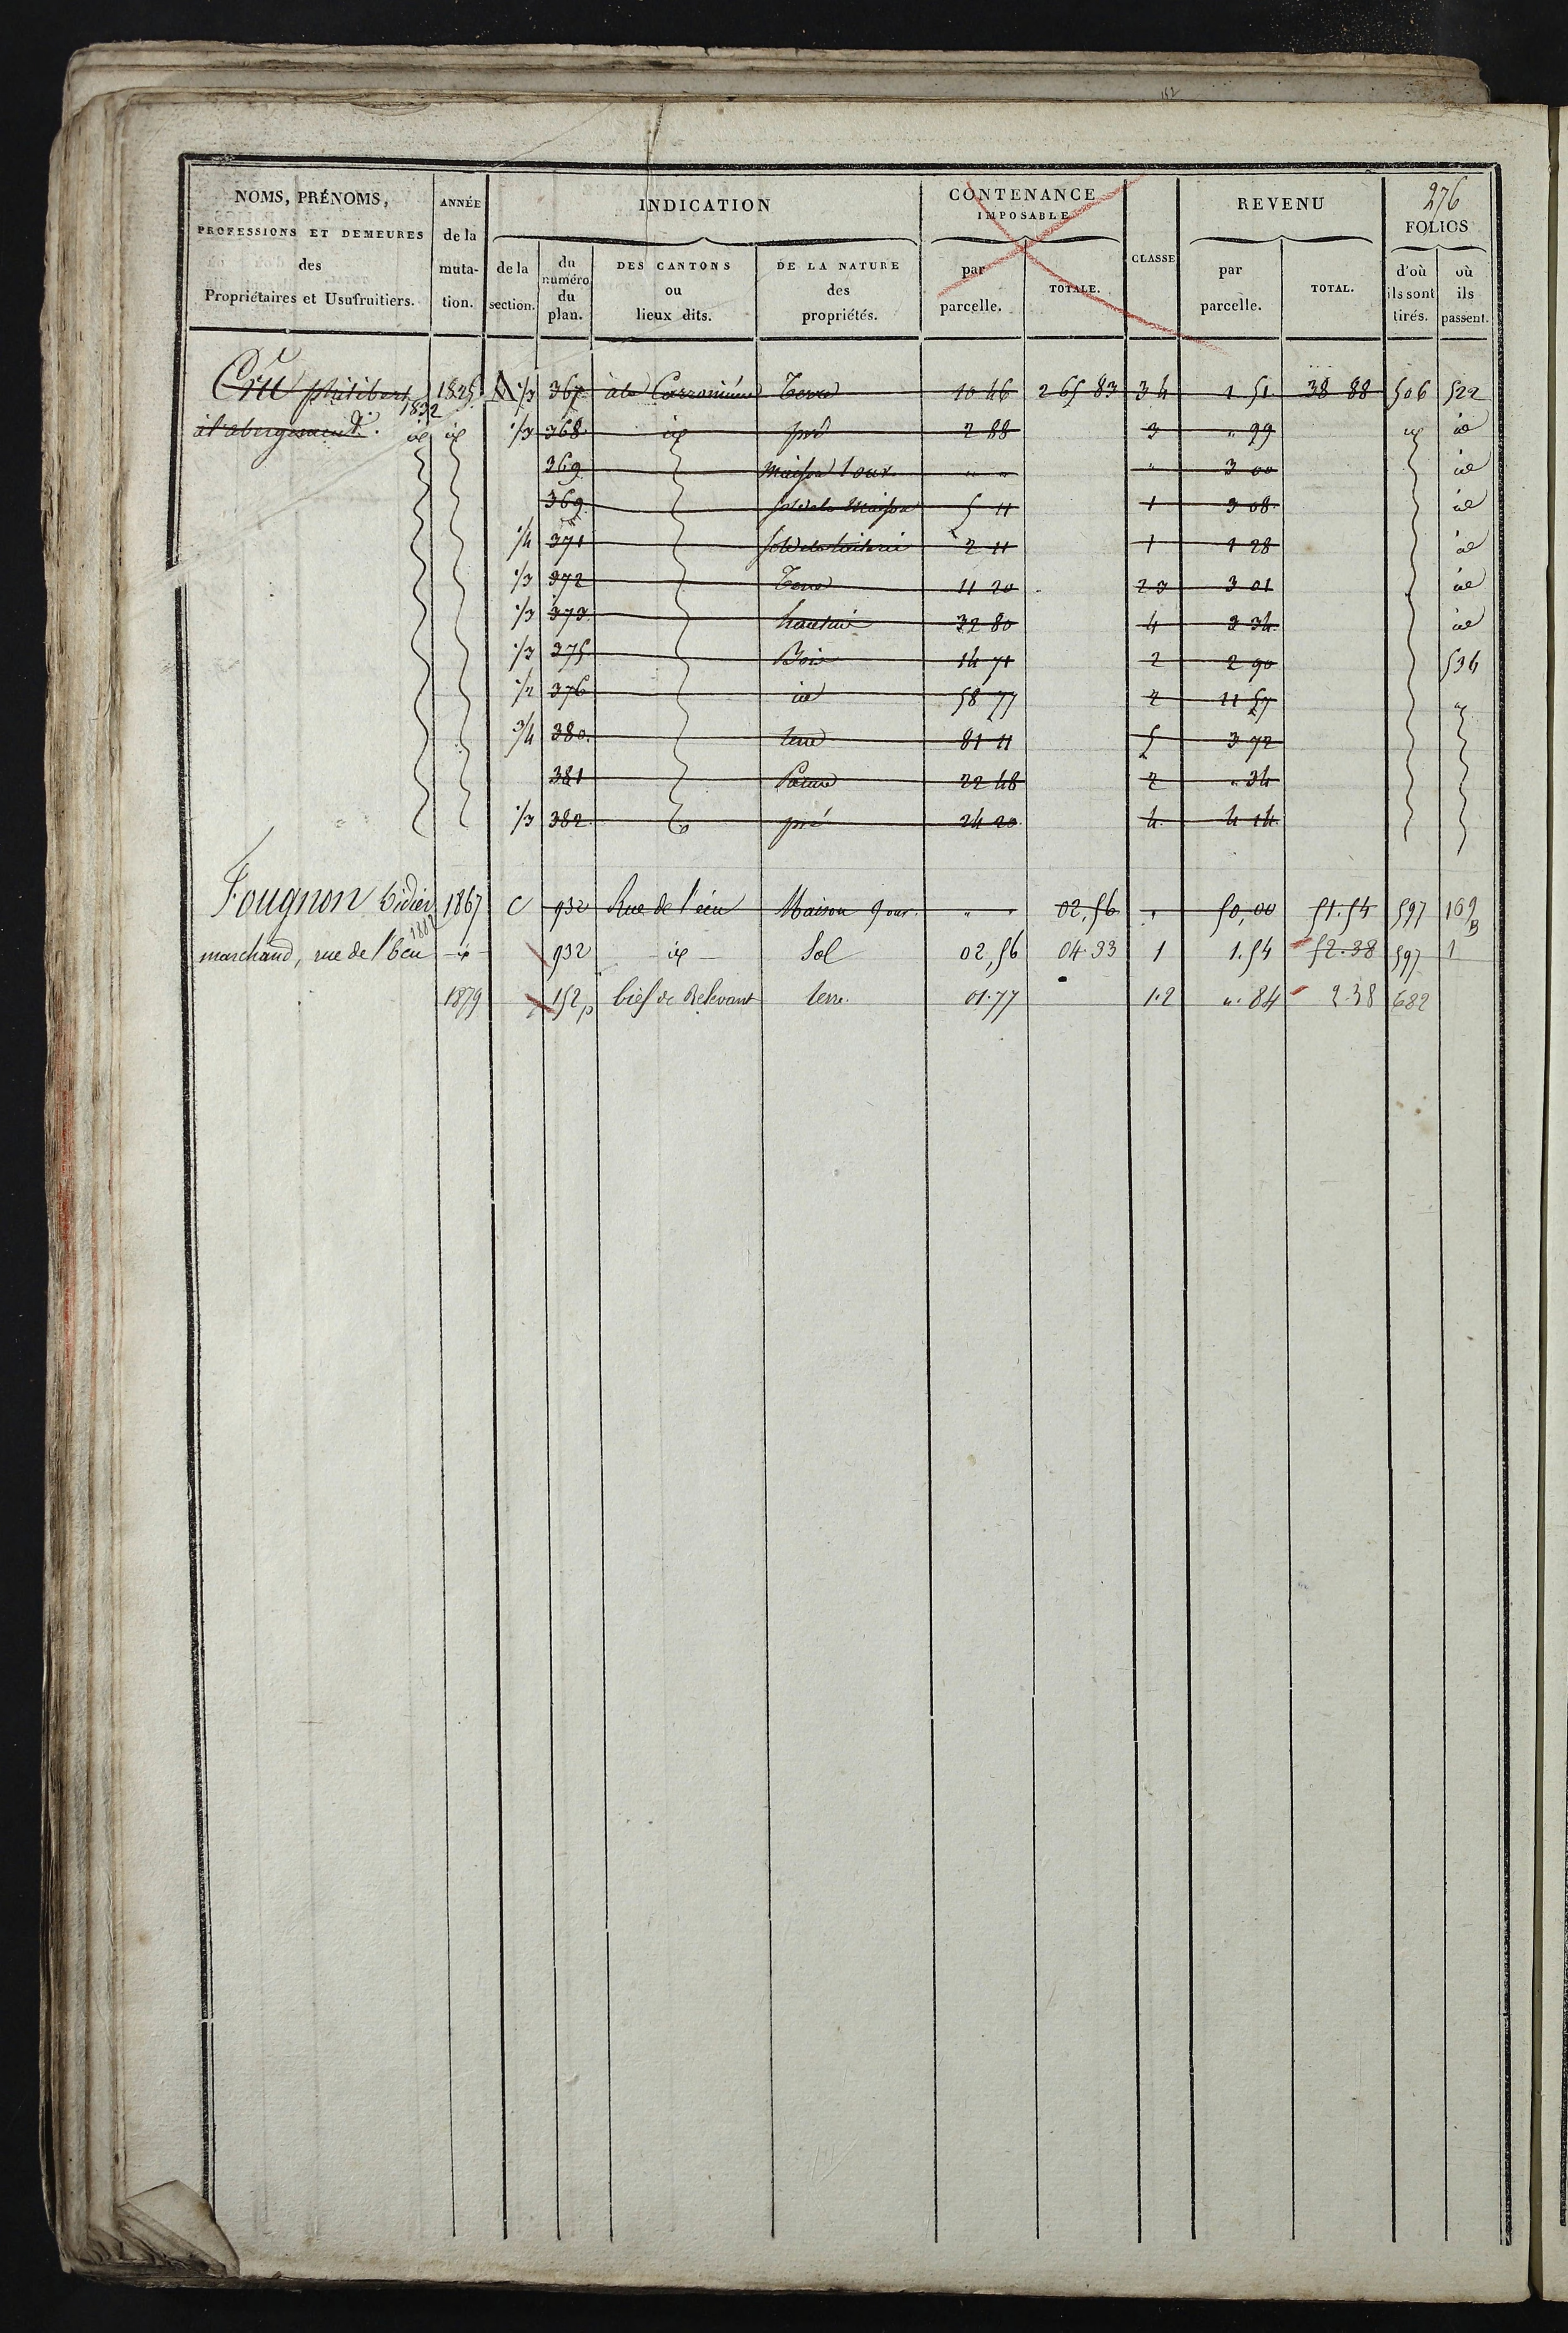 152
NOMS, PRÉNOMS, PROFESSIONS ET DEMEURES des Propriétaires et Usufruitiers. ANNÉE de la muta-tion. INDICATION CONTENANCE IMPOSABLE CLASSE REVENU 276 FOLIOS
de la section. du numéro du plan. DES CANTONS ou lieux dits. DE LA NATURE des propriétés. par parcelle. TOTALE. par parcelle. TOTAL. d'où ils sont tirés. où ils passent.
Cru philibert 1825 A 1/3 367 à la Terre 10 46 265 83 3 4 1 51 38 88 506 522
à l'abergement. 1832 id id 1/3 368 id pré 2 88 3 " 99 id id
369 Maison 1 ouv. " " " 3 00 id
369 sol de la Maison 5 11 1 3 08 id
1/4 371 2 11 1 1 28 id
1/3 372 Terre 11 20 2 3 3 01 id
1/3 373 hautin 32 80 4 3 34 id
1/3 375 Bois 14 71 2 2 90 536
1/2 376 id 58 77 2 11 57 "
3/4 380 terre 81 11 5 3 72
381 Pature 22 48 2 " 34
1/3 382 pré 24 20 4 4 14
Fougnon Didier 1867 C 932 Rue de l'écu Maison 9 ouv. " " 02,56 " 50,00 51.54 597 169 B
1882
marchand, rue de l'Ecu id 932 id Sol 02,56 04.33 1 1.54 52.38 597 1
1879 152 p bief de Relevant terre. 01.77 1.2 ". 84 2.38 682